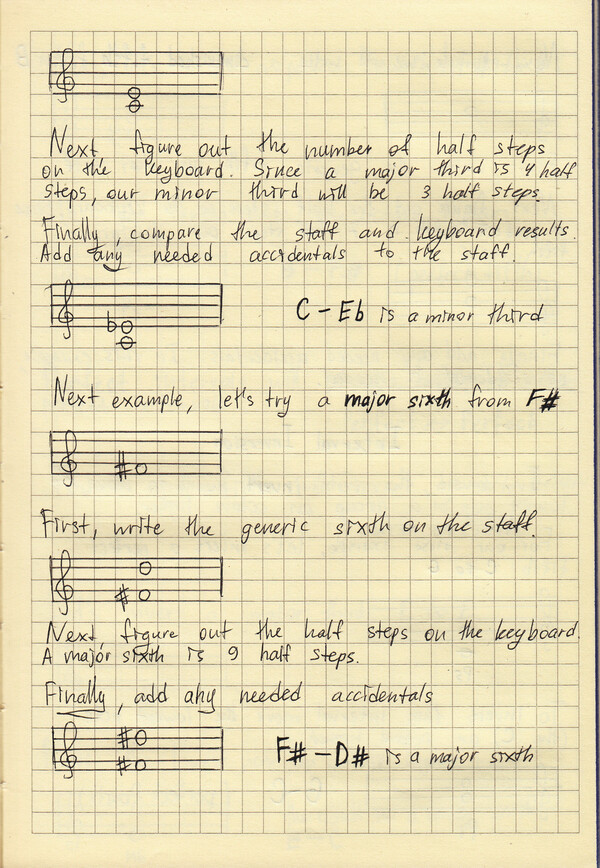 Next figure out the number of half steps
on the keyboard. Since a major third is 4 half
steps, our minor third will be 3 half steps.
Finally, compare the staff and keyboard results.
Add any needed accidentals to the staff.
C – Eb is a minor third
Next example, let's try a major sixth from F#
First, write the generic sixth on the staff.
Next, figure out the half steps on the keyboard.
A major sixth is 9 half steps.
Finally, add any needed accidentals
F# – D# is a major sixth